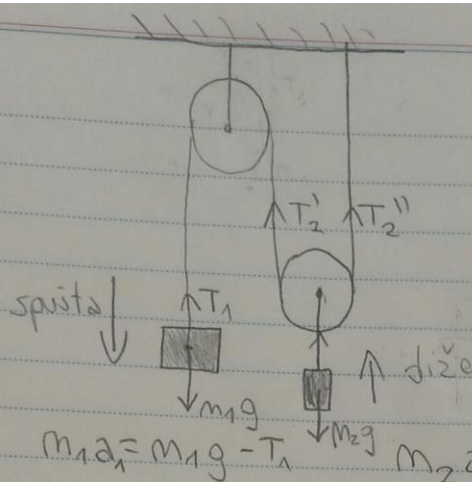 T₂' T₂''
spušta T₁
diže
m₁g
m₂g
m₁a₁ = m₁g - T₁ m₂a